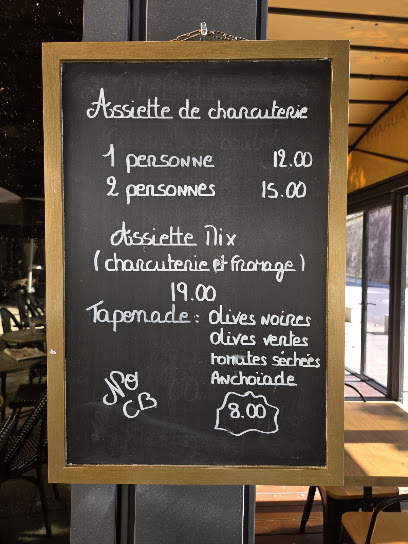 Assiette de charcuterie
1 personne 12.00
2 personnes 15.00
Assiette Mix
(charcuterie et fromage)
19.00
Tapenade : Olives noires
Olives ventes
tomates séchées
Anchoïade
No
CB
8.00